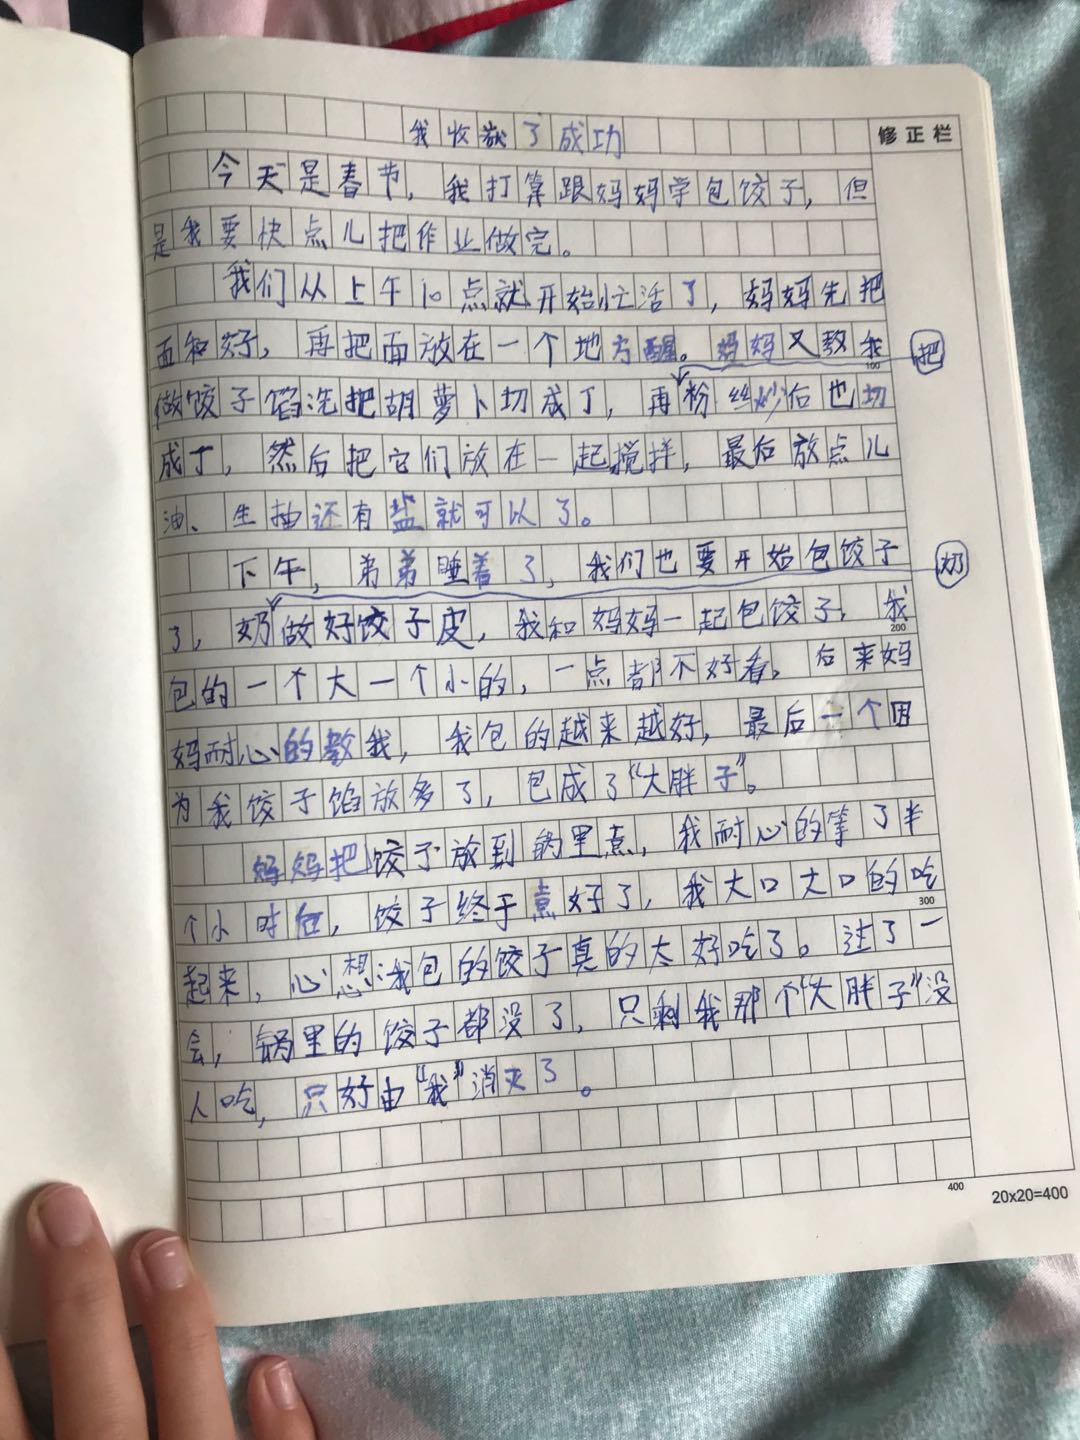 我收获了成功
修正栏
今天是春节，我打算跟妈妈学包饺子，但
是我要快点儿把作业做完。
我们从上午10点就开始忙活了，妈妈先把
面和好，再把面放在一个地方醒。妈妈又教我
100
把
做饺子馅洗把胡萝卜切成丁，再粉丝炒后也切
成丁，然后把它们放在一起搅拌，最后放点儿
油、生抽还有盐就可以了。
下午，弟弟睡着了，我们也要开始包饺子
奶
了，奶做好饺子皮，我和妈妈一起包饺子，我
200
包的一个大一个小的，一点都不好看。后来妈
妈耐心的教我，我包的越来越好，最后一个因
为我饺子馅放多了，包成了“大胖子”。
妈妈把饺子放到锅里煮，我耐心的等了半
个小时后，饺子终于煮好了，我大口大口的吃
300
起来，心想：我包的饺子真的太好吃了。过了一
会，锅里的饺子都没了，只剩我那个“大胖子”没
人吃，只好由“我”消灭了。
400
20x20=400